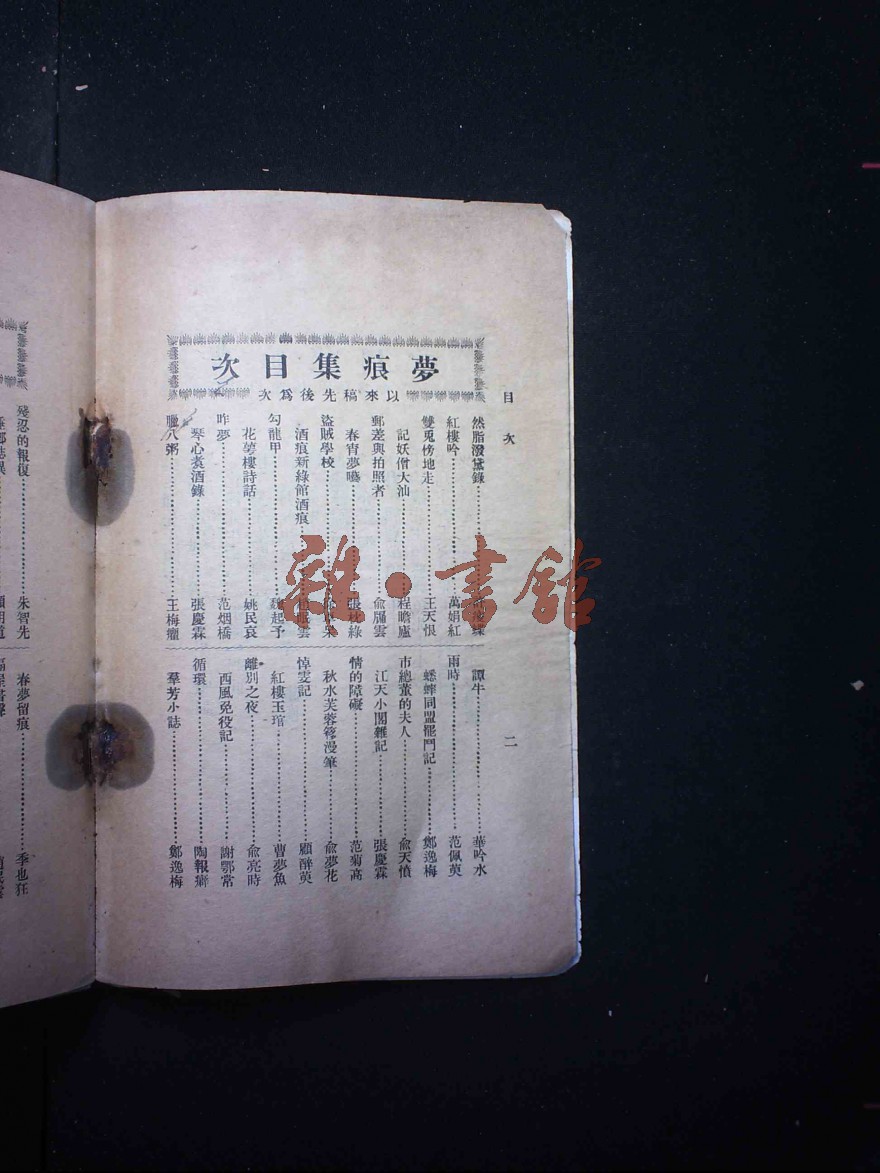 夢痕集目次
以來稿先後爲次
目次
二
然脂潑黛錄
紅樓吟……萬娟紅
雙兎傍地走……王天恨
記妖僧大汕……程瞻廬
郵差與拍照者……俞牖雲
春宵夢囈……張枕綠
盜賊學校
酒痕新綠館酒痕
勾龍甲……魏起予
花萼樓詩話……姚民哀
咋夢……范烟橋
琴心煑酒錄……張慶霖
臘八粥……王梅癯
譚牛……華吟水
雨時……范佩萸
蟋蟀同盟罷鬥記……鄭逸梅
市總董的夫人……俞天憤
江天小閣雜記……張慶霖
情的障礙……范菊高
秋水芙蓉簃漫筆……俞夢花
悼雯記……顧醉萸
紅樓玉琯……曹夢魚
離別之夜……俞亮時
西風免役記……謝鄂常
循環……陶報癖
羣芳小誌……鄭逸梅
殘忍的報復……朱智先
春夢留痕……季也狂
雜·書館